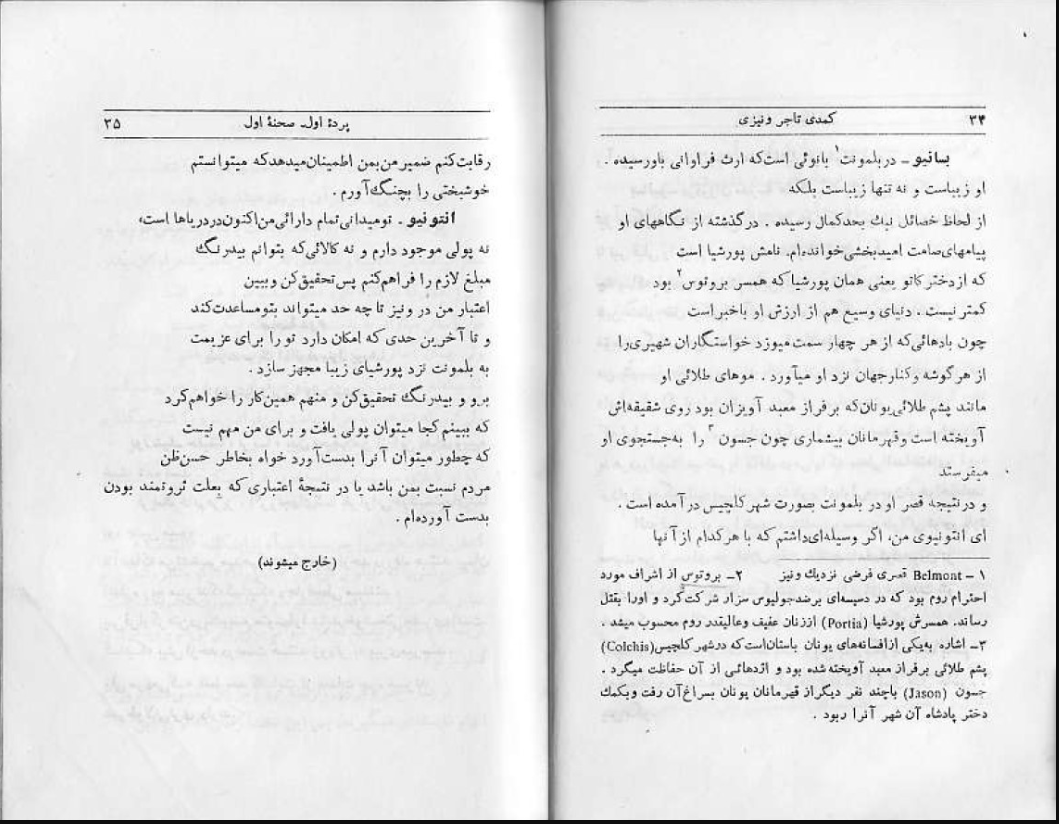 ۳۴
کمدی تاجر ونیزی
بسانیو ـ در بلمونت۱ بانوئی است‌که ارث فراوانی باورسیده .
او زیباست و نه تنها زیباست بلکه
از لحاظ خصائل نیك بحدکمال رسیده . درگذشته از نگاههای او
پیامهای‌صامت امیدبخشی‌خوانده‌ام. نامش پورشیا است
که ازدختر کاتو یعنی همان پورشیاکه همسر بروتوس۲ بود
کمترنیست . دنیای وسیع هم از ارزش او باخبراست
چون بادهائی‌که از هر چهار سمت‌میوزد خواستگاران شهیری‌را
از هرگوشه وکنارجهان نزد او میآورد . موهای طلائی او
مانند پشم طلائی‌یونان‌که برفراز معبد آویزان بود روی شقیقه‌اش
آویخته است وقهرمانان بیشماری چون جسون۳ را به‌جستجوی او
میفرستد
و درنتیجه قصر او در بلمونت بصورت شهرکلچیس درآمده است .
ای انتونیوی من، اگر وسیله‌ای‌داشتم که با هرکدام از آنها
۱ – Belmont قصری فرضی نزدیك ونیز ۲ـ بروتوس از اشراف مورد
احترام روم بود که در دسیسه‌ای برضدجولیوس سزار شرکت‌کرد و اورا بقتل
رساند. همسرش پورشیا (Portia) اززنان عفیف وعالیقدر روم محسوب میشد .
۳ـ اشاره به‌یکی ازافسانه‌های یونان باستان‌است‌که درشهر کلچیس(Colchis)
پشم طلائی برفراز معبد آویخته‌شده بود و اژدهائی از آن حفاظت میگرد .
جسون (Jason) باچند نفر دیگراز قهرمانان یونان بسراغ‌آن رفت وبکمك
دختر پادشاه آن شهر آنرا ربود .
پردهٔ اول- صحنهٔ اول
۳۵
رقابت‌کنم ضمیرمن‌بمن اطمینان‌میدهدکه میتوانستم
خوشبختی را بچنگ‌آورم .
انتونیو . تومیدانی‌تمام دارائی‌من‌اکنون‌دردریاها است،
نه پولی موجود دارم و نه کالائی‌که بتوانم بیدرنگ
مبلغ لازم را فراهم‌کنم پس‌تحقیق‌کن وببین
اعتبار من در ونیز تا چه حد میتواند بتومساعدت‌کند
و تا آخرین حدی که امکان دارد تورا برای عزیمت
به بلمونت نزد پورشیای زیبا مجهز سازد .
برو و بیدرنگ تحقیق‌کن و منهم همین‌کار را خواهم‌کرد
که ببینم‌کجا میتوان پولی یافت و برای من مهم نیست
که چطور میتوان آنرا بدست‌آورد خواه بخاطر حسن‌ظن
مردم نسبت بمن باشد یا در نتیجهٔ اعتباری‌که بعلت ثروتمند بودن
بدست آورده‌ام.
(خارج میشوند)